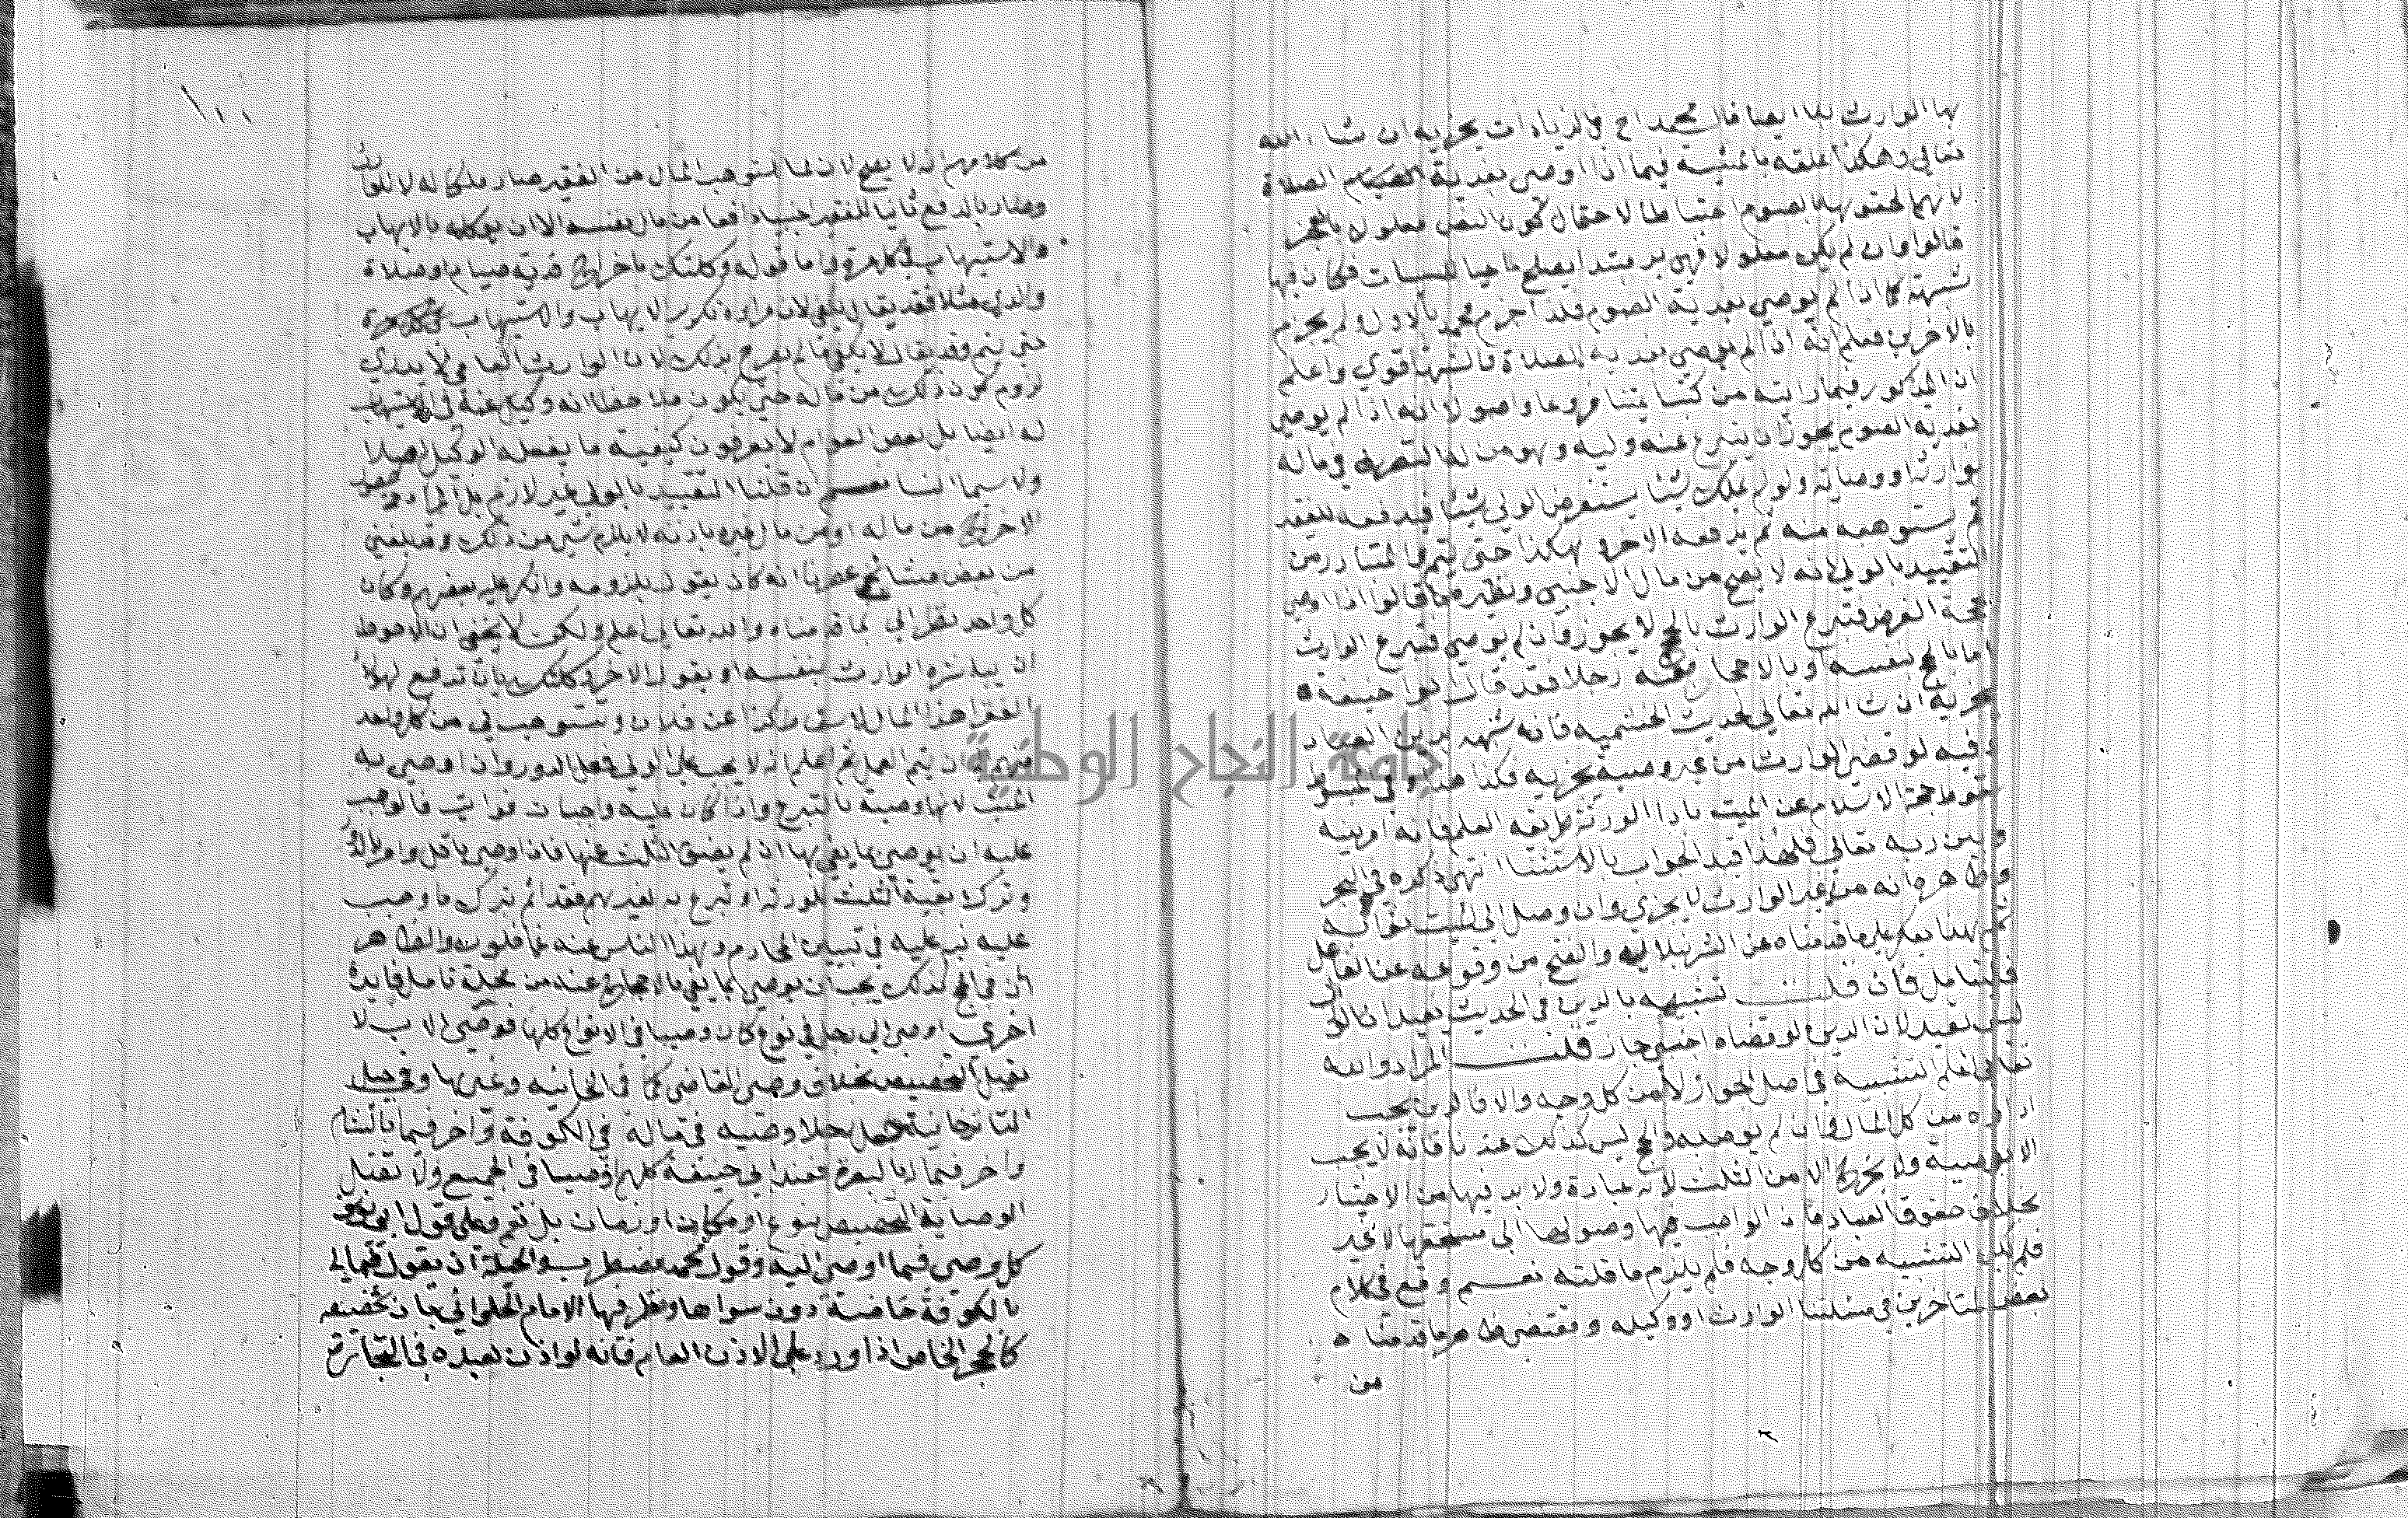 بها الوارث فلذا ايضا قال محمد اخ في الزيادات يجزيه ان شاء الله
تعالى وهكذا علقه بالمشية فيما اذا اوصى بفدية الصلاة
لانهم الحقوها بالصوم احتياطا لاحتمال كون النص معلولا بالعجز
قالوا وان لم يكن معلولا فهي بر مبتدا يصلح ماحيا للسيات فكان فيها
شبهة كما اذا لم يوصي بفدية الصوم فلذا جزم محمد بالاول ولم يجزم
بالاخرين فعلم انه اذا لم يوصي بفدية الصلاة فالشبهة اقوى واعلم
ان المذكور فيما رايته من كتب ايمتنا فروعا واصولا انه اذا لم يوصي
بفدية الصوم يجوز ان يتبرع عنه وليه وهو من له التصرف في ماله
بوراثة او وصاية ولو لم يملك شيئا يستقرض الولي شيئا فيدفعه للفقير
ثم يستوهبه منه ثم يدفعه لاخر وهكذا حتى يتم فالمتبادر من
التقييد بالولي انه لا يصح من مال الاجنبي ونظيره ما قالوا اذا اوصى
بحجة الفرض فتبرع الوارث بالحج لا يجوز وان لم يوصي فتبرع الوارث
اما بالحج بنفسه او بالاحجاج عنه رجلا فقد قال ابو حنيفة
يجزيه ان شا الله تعالى لحديث الخثعمية فانه شبهه بدين العباد
وفيه لو قضى الوارث من غير وصية يجزيه فكذا هذا وفي المبسوط
سقوط حجة الاسلام عن الميت بادا الورثة طريقه العلم فانه امر بينه
وبين ربه تعالى فلهذا قيد الجواب بالاستثنا انتهى ذكره في البحر
وظاهره انه من غير الوارث لا يجزي وان وصل الى الميت ثوابه
ثم هذا يعكر على ما قدمناه عن الشرنبلالية والفتح من وقوعه عن الفاعل
فليتامل فان قلت تشبيهه بالدين في الحديث يفيد ان الوارث
ليس بقيد لان الدين لو قضاه اجنبي جاز قلت المراد والله
تعالى اعلم التشبيه في اصل الجواز لا من كل وجه والا فالدين يجب
اداؤه من كل المال وان لم يوص به والحج ليس كذلك عندنا فانه لا يجب
الا بوصية ولا يخرج الا من الثلث لانه عبادة ولا بد فيها من الاختيار
بخلاف حقوق العباد فان الواجب فيها وصولها الى مستحقها لا غير
فلم يكن التشبيه من كل وجه فلم يلزم ما قلته نعم وقع في كلام
بعض المتاخرين في مسئلتنا الوارث او وكيله ومقتضى ظاهر ما قدمناه
من
من كلامهم انه لا يصح لان لما استوهب المال من الفقير صار ملكا له لا للوارث
وصار بالدفع ثانيا للفقير اجنبيا دافعا من مال نفسه الا ان يوكله بالايهاب
والاستيهاب في كل مرة واما قوله وكلتك باخراج فدية صيام او صلاة
والدي مثلا فقد يقال يكفي لان مراده تكرير الايهاب والاستيهاب في كل مرة
حتى يتم وقد يقال لا يكفي ما لم يصرح بذلك لان الوارث العامي لا يدري
لزوم كون ذلك من ماله حتى يكون ملاحظا انه وكيل عنه في الاستيهاب
له ايضا بل بعض العوام لا يعرفون كيفية ما يفعله الوكيل اصلا
ولا سيما النسا نعم ان قلنا التقييد بالولي غير لازم بل المراد حصول
الاخراج من ماله او من مال غيره باذنه لا يلزم شي من ذلك وقد بلغني
من بعض مشايخ عصرنا انه كان يقول بلزومه وانكر عليه بعضهم وكان
كل واحد نظر الى ما قدمناه والله تعالى اعلم ولكن لا يخفى ان الاحوط
ان يباشره الوارث بنفسه او يقول لاخر وكلتك بان تدفع لهولا
الفقرا هذا المال لاسقاط كذا عن فلان وتستوهب لي من كل واحد
منهم الى ان يتم العمل ثم اعلم انه لا يجب على الولي فعل الدور وان اوصى به
الميت لانها وصية بالتبرع واذا كان عليه واجبات فوايت فالواجب
عليه ان يوصي بما يفي بها ان لم يضق الثلث عنها فاذا اوصى باقل وامر بالدور
وترك بقية الثلث للورثة او تبرع به لغيرهم فقد اثم بترك ما وجب
عليه نبه عليه في تبيين المحارم وهذا الناس عنه غافلون والظاهر
ان في الحج كذلك يجب ان يوصي بما يفي بالاحجاج عنه من محله تامل فايدة
اخرى اوصى الى رجل في نوع كان وصيا في الانواع كلها فوصي الاب لا
يقبل التخصيص بخلاف وصي القاضي كما في الخانيه وغيرها وفي حيل
التاترخانية جعل رجلا وصيه في ماله في الكوفة واخر فيما بالشام
واخر فيما له بالبصرة فعند ابي حنيفة كلهم اوصيا في الجميع ولا تقبل
الوصاية التخصيص بنوع او مكان او زمان بل تعم وعلى قول ابي يوسف
كل وصي فيما اوصى اليه وقول محمد مضطرب والحيلة ان يقول فيما لي
بالكوفة خاصة دون سواها ونظر فيها الامام الحلواني بان تخصيصه
كالحجر الخاص اذا ورد على الاذن العام فانه لو اذن لعبده في التجارة
جامعة النجاح الوطنية